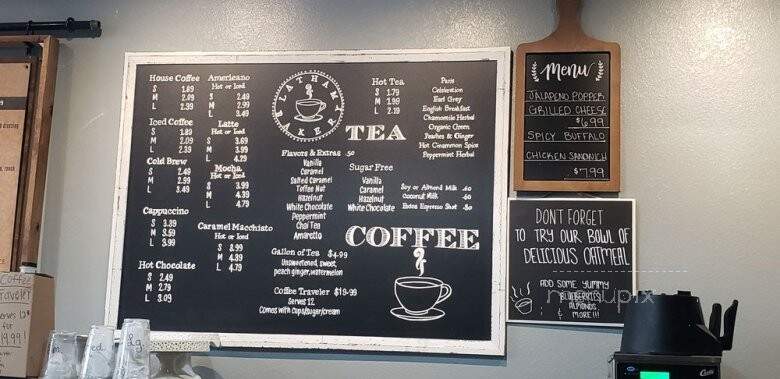 House Coffee
S 1.89
M 2.09
L 2.39
Iced Coffee
S 1.89
M 2.09
L 2.39
Cold Brew
S 2.49
M 2.99
L 3.49
Cappuccino
S 3.39
M 3.59
L 3.99
Hot Chocolate
S 2.49
M 2.79
L 3.09
Americano
Hot or Iced
S 2.49
M 2.99
L 3.49
Latte
Hot or Iced
S 3.69
M 3.99
L 4.29
Mocha
Hot or Iced
S 3.99
M 4.39
L 4.79
Caramel Macchiato
Hot or Iced
S 3.99
M 4.39
L 4.79
LATHAM
BAKERY
TEA
Hot Tea
S 1.79
M 1.99
L 2.19
Paris
Celebration
Earl Grey
English Breakfast
Chamomile Herbal
Organic Green
Peaches & Ginger
Hot Cinnamon Spice
Peppermint Herbal
Flavors & Extras .50
Vanilla
Caramel
Salted Caramel
Toffee Nut
Hazelnut
White Chocolate
Peppermint
Chai Tea
Amaretto
Sugar Free
Vanilla
Caramel
Hazelnut
White Chocolate
Soy or Almond Milk .60
Coconut Milk .60
Extra Espresso Shot .80
COFFEE
Gallon of Tea $4.99
Unsweetened, sweet,
peach ginger, watermelon
Coffee Traveler $19.99
Serves 12
Comes with cups/sugar/cream
Menu
JALAPENO POPPER
GRILLED CHEESE
$6.99
SPICY BUFFALO
CHICKEN SANDWICH
$7.99
DONT FORGET
TO TRY OUR BOWL OF
DELICIOUS OATMEAL
ADD SOME YUMMY
BLUEBERRIES
ALMONDS
& MORE!!!
menupix
Coffee
Traveler
for